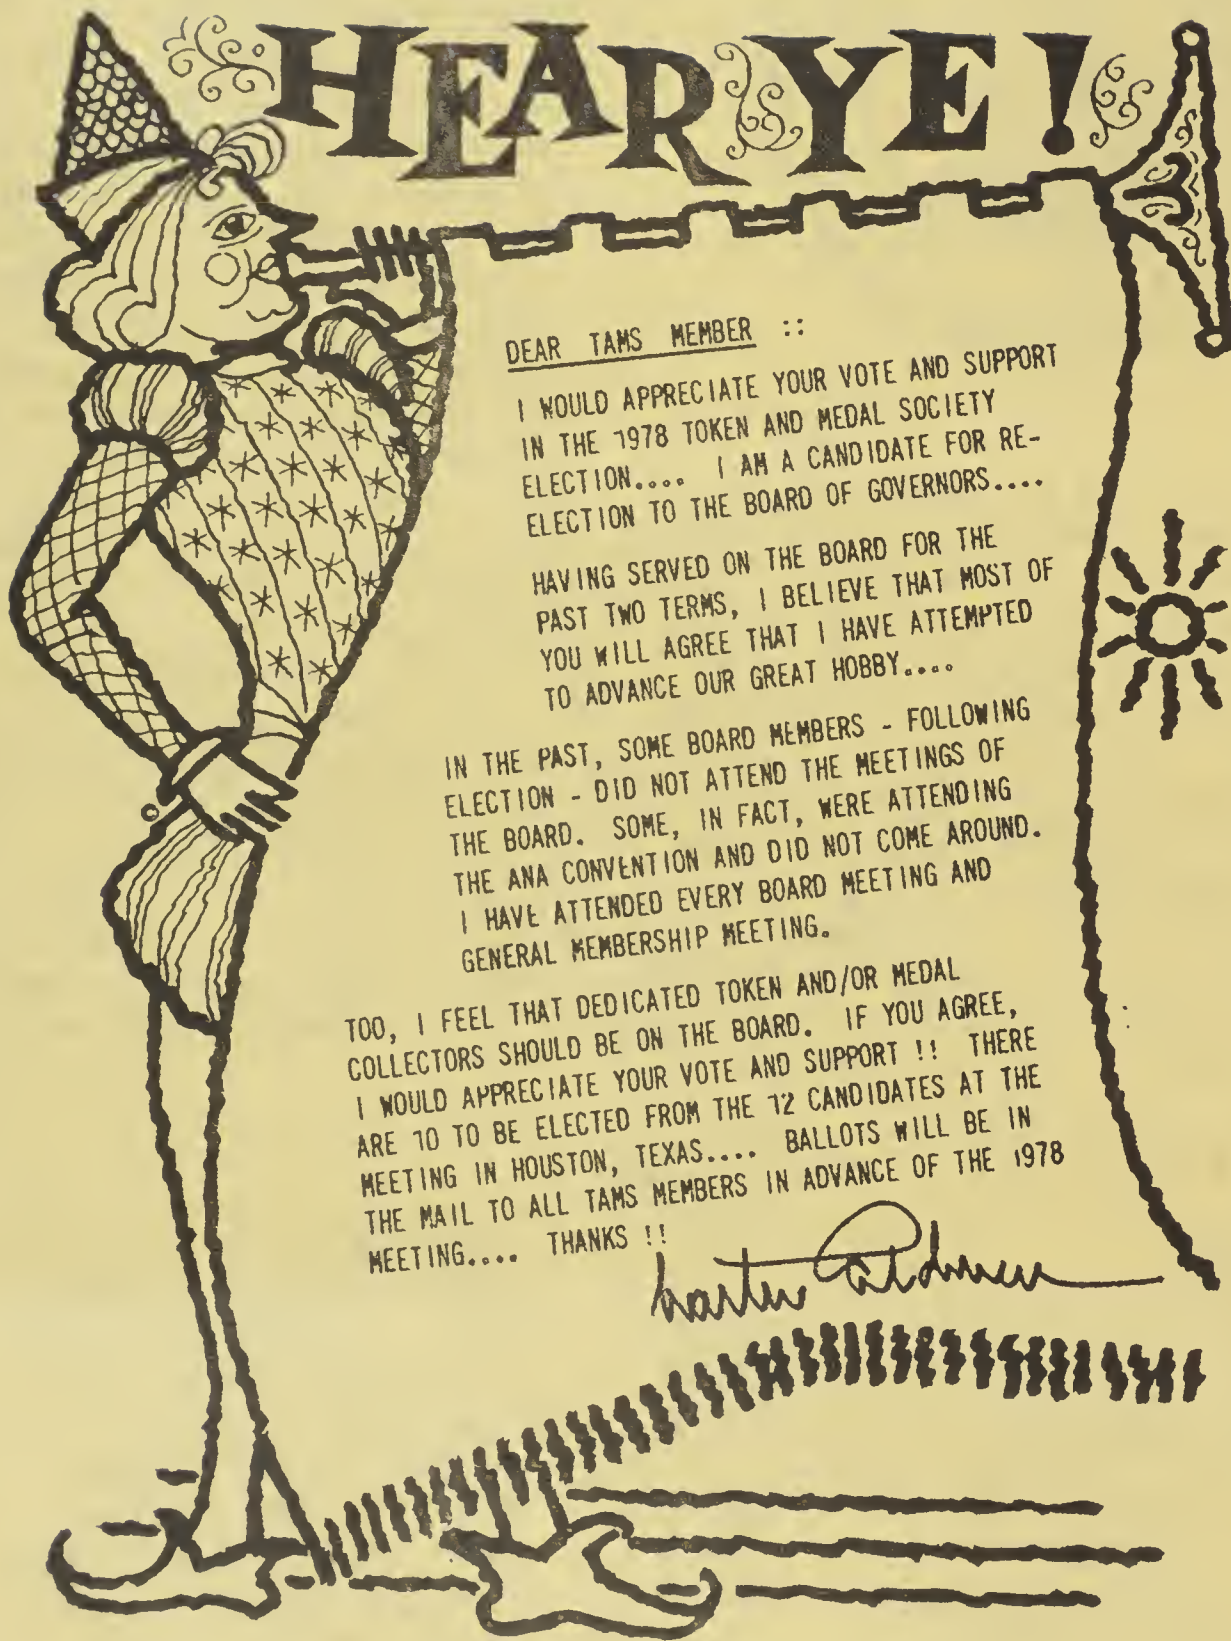 HEAR YE!
DEAR TAMS MEMBER ::
I WOULD APPRECIATE YOUR VOTE AND SUPPORT
IN THE 1978 TOKEN AND MEDAL SOCIETY
ELECTION.... I AM A CANDIDATE FOR RE-
ELECTION TO THE BOARD OF GOVERNORS....
HAVING SERVED ON THE BOARD FOR THE
PAST TWO TERMS, I BELIEVE THAT MOST OF
YOU WILL AGREE THAT I HAVE ATTEMPTED
TO ADVANCE OUR GREAT HOBBY....
IN THE PAST, SOME BOARD MEMBERS - FOLLOWING
ELECTION - DID NOT ATTEND THE MEETINGS OF
THE BOARD. SOME, IN FACT, WERE ATTENDING
THE ANA CONVENTION AND DID NOT COME AROUND.
I HAVE ATTENDED EVERY BOARD MEETING AND
GENERAL MEMBERSHIP MEETING.
TOO, I FEEL THAT DEDICATED TOKEN AND/OR MEDAL
COLLECTORS SHOULD BE ON THE BOARD. IF YOU AGREE,
I WOULD APPRECIATE YOUR VOTE AND SUPPORT !! THERE
ARE 10 TO BE ELECTED FROM THE 12 CANDIDATES AT THE
MEETING IN HOUSTON, TEXAS.... BALLOTS WILL BE IN
THE MAIL TO ALL TAMS MEMBERS IN ADVANCE OF THE 1978
MEETING.... THANKS !!